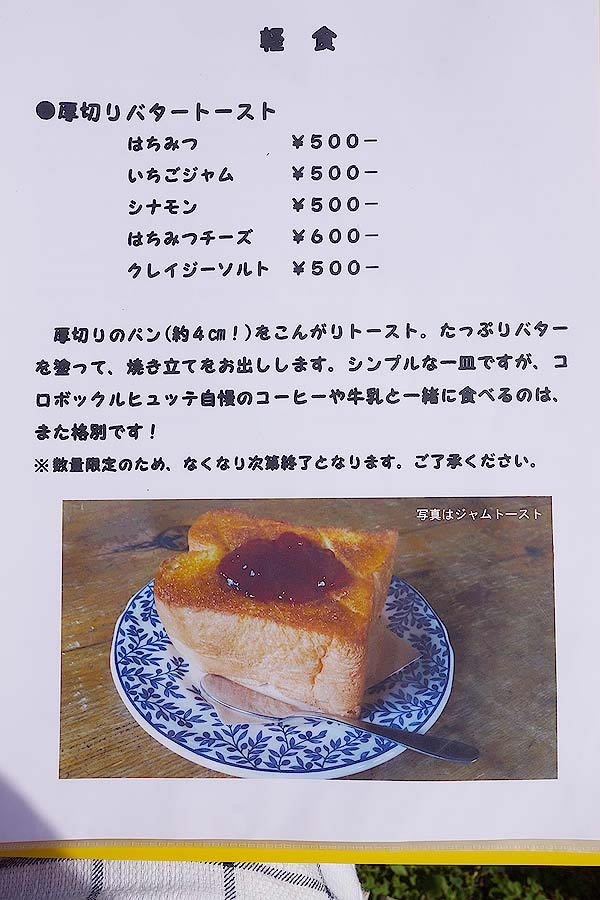 軽 食
●厚切りバタートースト
はちみつ ￥５００－
いちごジャム ￥５００－
シナモン ￥５００－
はちみつチーズ ￥６００－
クレイジーソルト ￥５００－
厚切りのパン(約４㎝！)をこんがりトースト。たっぷりバター
を塗って、焼き立てをお出しします。シンプルな一皿ですが、コ
ロボックルヒュッテ自慢のコーヒーや牛乳と一緒に食べるのは、
また格別です！
※数量限定のため、なくなり次第終了となります。ご了承ください。
写真はジャムトースト